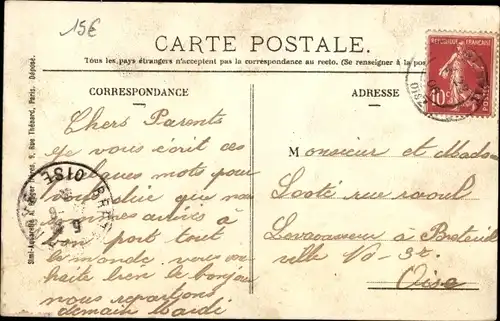 15€
CARTE POSTALE.
Tous les pays étrangers n'acceptent pas la correspondance au recto. (Se renseigner à la pos
CORRESPONDANCE
ADRESSE
RÉPUBLIQUE FRANÇAISE
10c
OISE
Chers Parents
je vous écrit ces
quelques mots pour
vous dire que nous
sommes arrivés à
bon port tout
le monde vous
haite bien le bonjour
nous repartons
demain Mardi
Monsieur et Madame
rue raoul
Levavasseur à Breteuil
ville No 32
Oise
OISE
6
9, Rue Thénard, Paris. Déposé.